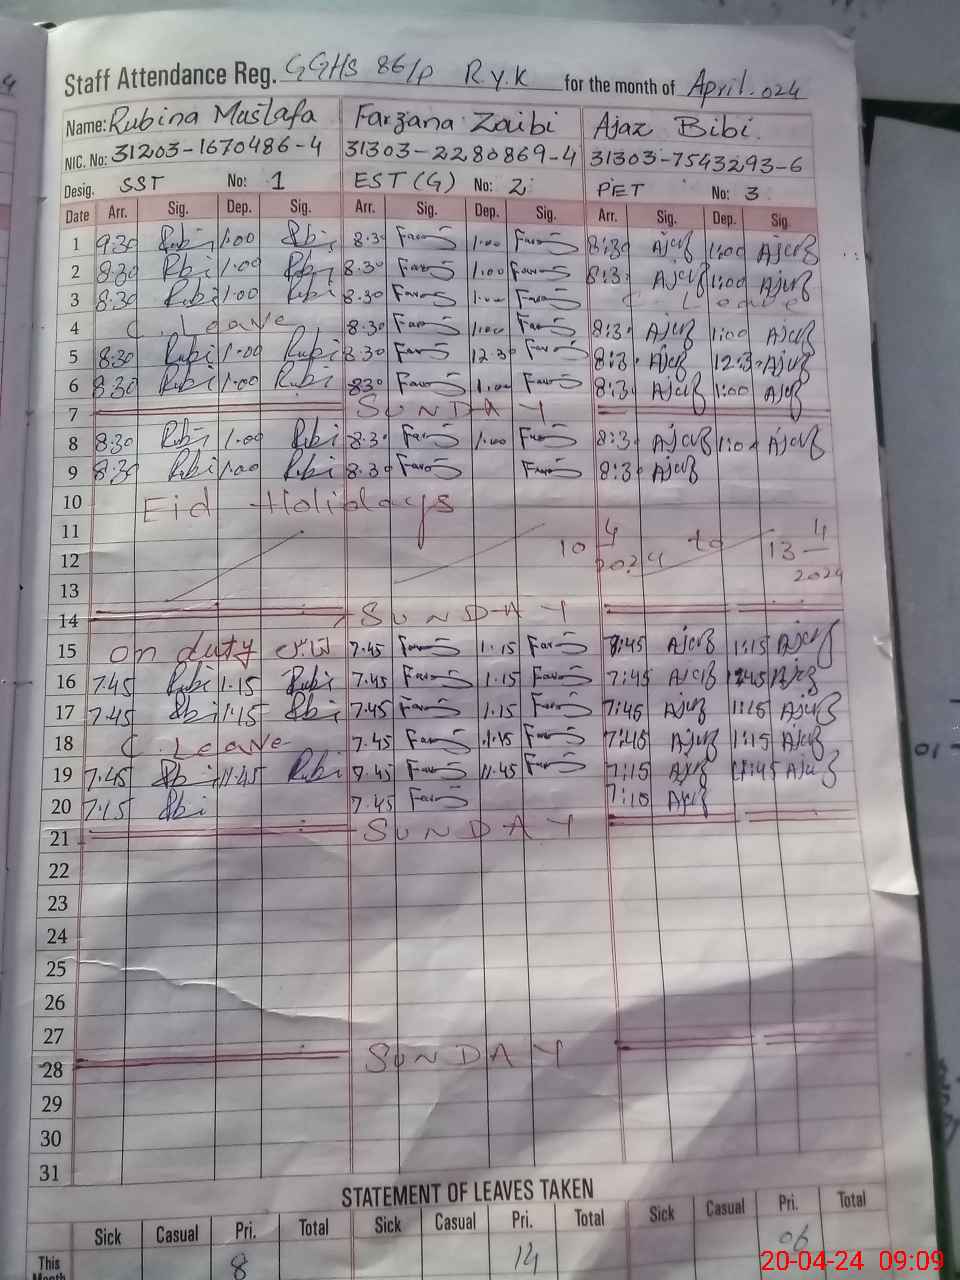 Staff Attendance Reg. GGHS 86/P R.Y.K for the month of April. 024
Name: Rubina Mustafa Farzana Zaibi Ajaz Bibi.
NIC. No: 31203-1670486-4 31303-2280869-4 31303-7543293-6
Desig. SST No: 1 EST (G) No: 2 PET No: 3
Date Arr. Sig. Dep. Sig. Arr. Sig. Dep. Sig. Arr. Sig. Dep. Sig.
1 9:30 Rubi 1.00 Rbi 8.30 1.00 8:30 Ajaz 1:00 Ajaz
2 8:30 Rbi 1.00 Rbi 8.30 1.00 8:3 Ajaz 1:00 Ajaz
3 8:30 Rubi 1.00 Rubi 8.30 1.00 C. Leave
4 C. Leave 8:30 1:00 8:3 Ajaz 1:00 Ajaz
5 8:30 Rubi 1.00 Rubi 8.30 12.30 8:3 Ajaz 12:3 Ajaz
6 8:30 Rubi 1.00 Rubi 830 1.00 8:3 Ajaz 1:00 Ajaz
7 SUNDAY
8 8:30 Rubi 1.00 Rubi 8.30 1.00 8:3 Ajaz 1:0 Ajaz
9 8:30 Rubi 1.00 Rubi 8.30 8:3 Ajaz
10 Eid Holidays
11 10 4 2024 to 13 4 2024
12
13
14 SUNDAY
15 on duty 7.45 1.15 7:45 Ajaz 1:15 Ajaz
16 7.45 Rubi 1.15 Rubi 7.45 1.15 7:45 Ajaz Ajaz
17 7.45 Rbi 1:15 Rbi 7.45 1.15 7:45 Ajaz 1:15 Ajaz
18 C. Leave 7.45 1.15 7:45 Ajaz 1:15 Ajaz
19 7:45 Rbi 11:45 Rubi 7.45 11.45 7:15 Ajaz 11:45 Ajaz
20 7:15 Rbi 7.45 7:10 Ajaz
21 SUNDAY
22
23
24
25
26
27
28 SUNDAY
29
30
31
STATEMENT OF LEAVES TAKEN
Sick Casual Pri. Total Sick Casual Pri. Total Sick Casual Pri. Total
This Month 8 14 06
20-04-24 09:09